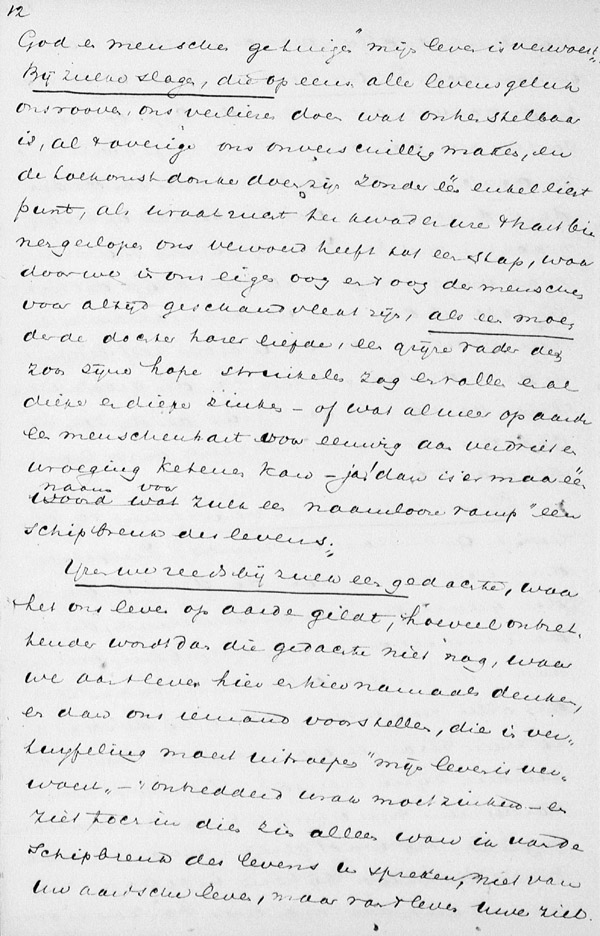 12
God en menschen getuigen "mijn leven is verwoest".
Bij zulke slagen, die op eens alle levensgeluk
ons rooven, ons verliezen doen wat onherstelbaar
is, al 't overige ons onverschillig maken, en
de toekomst donker doen zijn zonder één enkel licht
punt, als wraakzucht het kwade ure 't hart bin
nengeslopen ons vervoerd heeft tot een stap, waar
door we in ons eigen oog en 't oog der menschen
voor altijd geschandvlekt zijn, als een moe,
der de dochter harer liefde, een grijze vader den
zoon zijner hope struikelen zag en vallen en al
dieper en dieper zinken – of wat al meer op aarde
een menschenhart voor eeuwig aan verdriet en
wroeging ketenen kan – ja! dan is er maar één
naam voor
woord wat zulk een naamloose ramp "een
schipbreuk des levens".
IJzen we reeds bij zulk een gedachte, waar
het ons leven op aarde geldt, hoeveel ontzet,
tender wordt dan die gedachte niet nog, waar
we aan 't leven hier en hiernamaals denken,
en dan ons iemand voorstellen, die in ver,
twijfeling moest uitroepen "mijn leven is ver,
woest, – 't ontredderd wrak moet zinken – en
ziet toch in dien zin alleen wou ik van de
Schipbreuk des levens u spreken, niet van
uw aardsche leven, maar van 't leven uwer ziel.